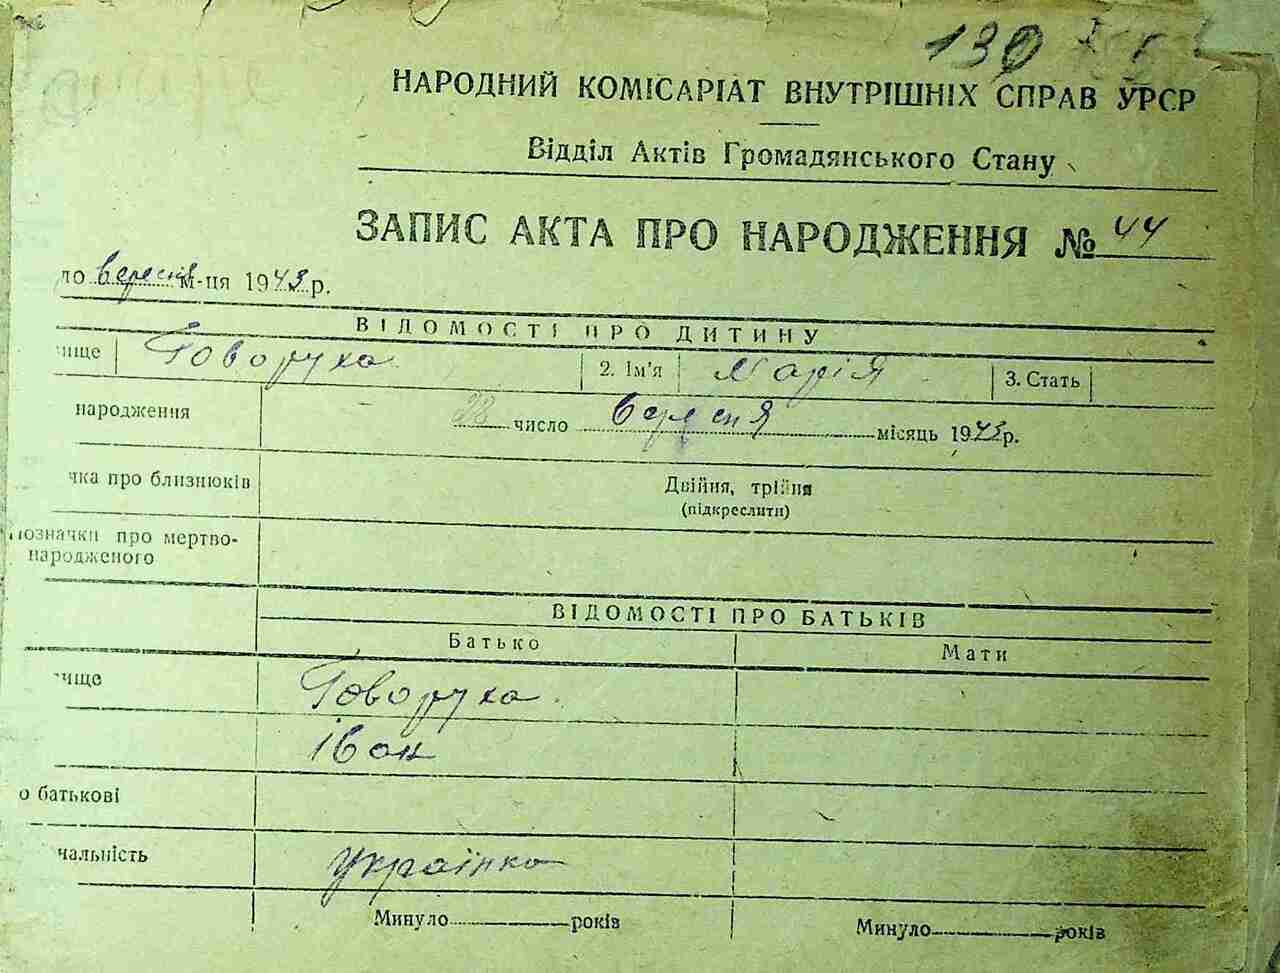 130
НАРОДНИЙ КОМІСАРІАТ ВНУТРІШНІХ СПРАВ УРСР
Відділ Актів Громадянського Стану
ЗАПИС АКТА ПРО НАРОДЖЕННЯ № 44
ло вересня м-ця 1943 р.
ВІДОМОСТІ ПРО ДИТИНУ
ище Говоруха 2. Ім'я Марія 3. Стать
народження 28 число вересня місяць 1943 р.
чка про близнюків Двійня, трійня
(підкреслити)
Позначки про мертво-
народженого
ВІДОМОСТІ ПРО БАТЬКІВ
Батько Мати
ище Говоруха
Іван
о батькові
нальність Українка
Минуло років Минуло років